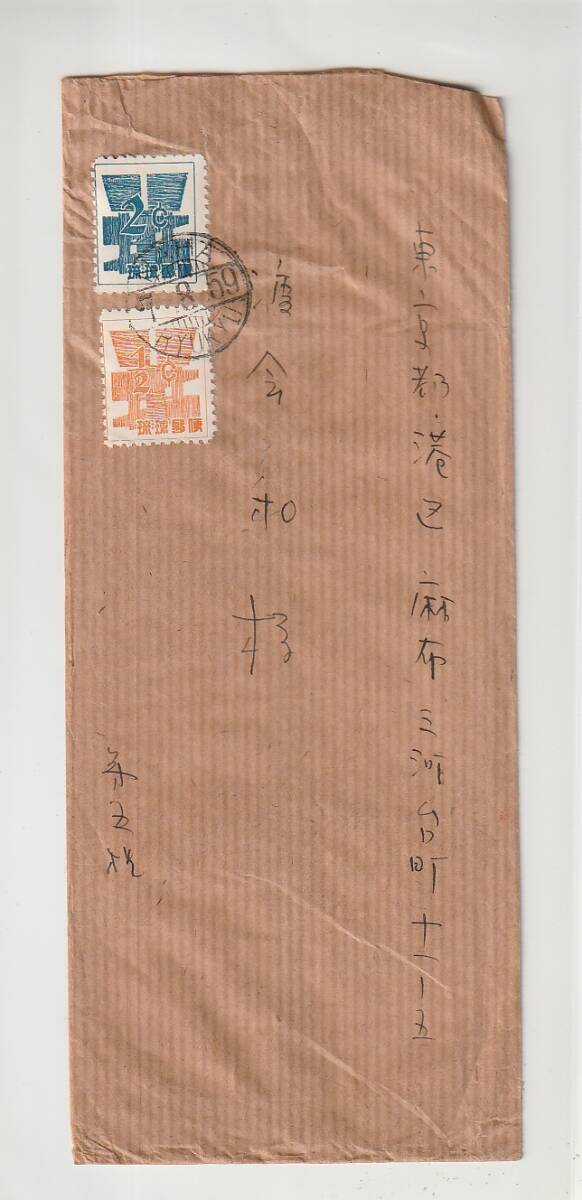 東京都・港区麻布三河台町十一ー五
渡会 和様
2¢
琉球郵便
1/2¢
琉球郵便
59
RYUKYU